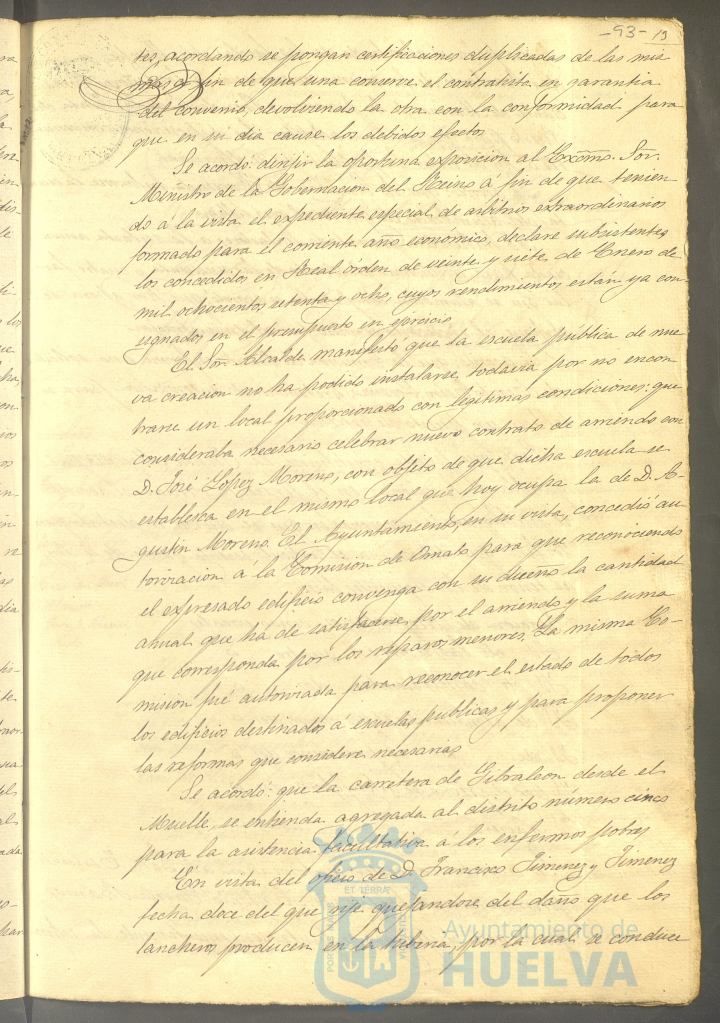 -93- 13
tes, acordando se pongan certificaciones duplicadas de las mis
mas á fin de que una conserve el contratista en garantia
del convenio, devolviendo la otra con la conformidad para
que en su dia cause los debidos efectos
Se acordó: dirijir la oportuna exposicion al Excmo. Sor.
Ministro de la Gobernacion del Reino á fin de que tenien-
do á la vista el expediente especial de arbitrios extraordinarios
formado para el corriente año económico, declare subsistentes
los concedidos en Real órden de veinte y siete de Enero de
mil ochocientos setenta y ocho, cuyos rendimientos están ya con-
signados en el presupuesto en ejercicio
El Sor. Alcalde manifestó que la escuela publica de nue
va creacion no ha podido instalarse todavia por no encon
trarse un local proporcionado con legitimas condiciones: que
consideraba necesario celebrar nuevo contrato de arriendo con
D. José Lopez Moreno, con objeto de que dicha escuela se
establezca en el mismo local que hoy ocupa la de D. A-
gustin Moreno. El Ayuntamiento, en su vista, concedió au
torizacion á la Comision de Ornato para que reconociendo
el expresado edificio convenga con su dueño la cantidad
anual que ha de satisfacerse por el arriendo y la suma
que corresponda por los reparos menores. La misma Co-
mision fué autorizada para reconocer el estado de todos
los edificios destinados á escuelas publicas y para proponer
las reformas que considere necesarias
Se acordó: que la carretera de Gibraleon desde el
Muelle, se entienda agregada al distrito número cinco
para la asistencia facultativa á los enfermos pobres
En vista del oficio de D. Francisco Jimenez y Jimenez
fecha doce del que rije quejandose del daño que los
lancheros producen en la tuberia, por la cual se conduce
ET TERRÆ
Ayuntamiento de
HUELVA